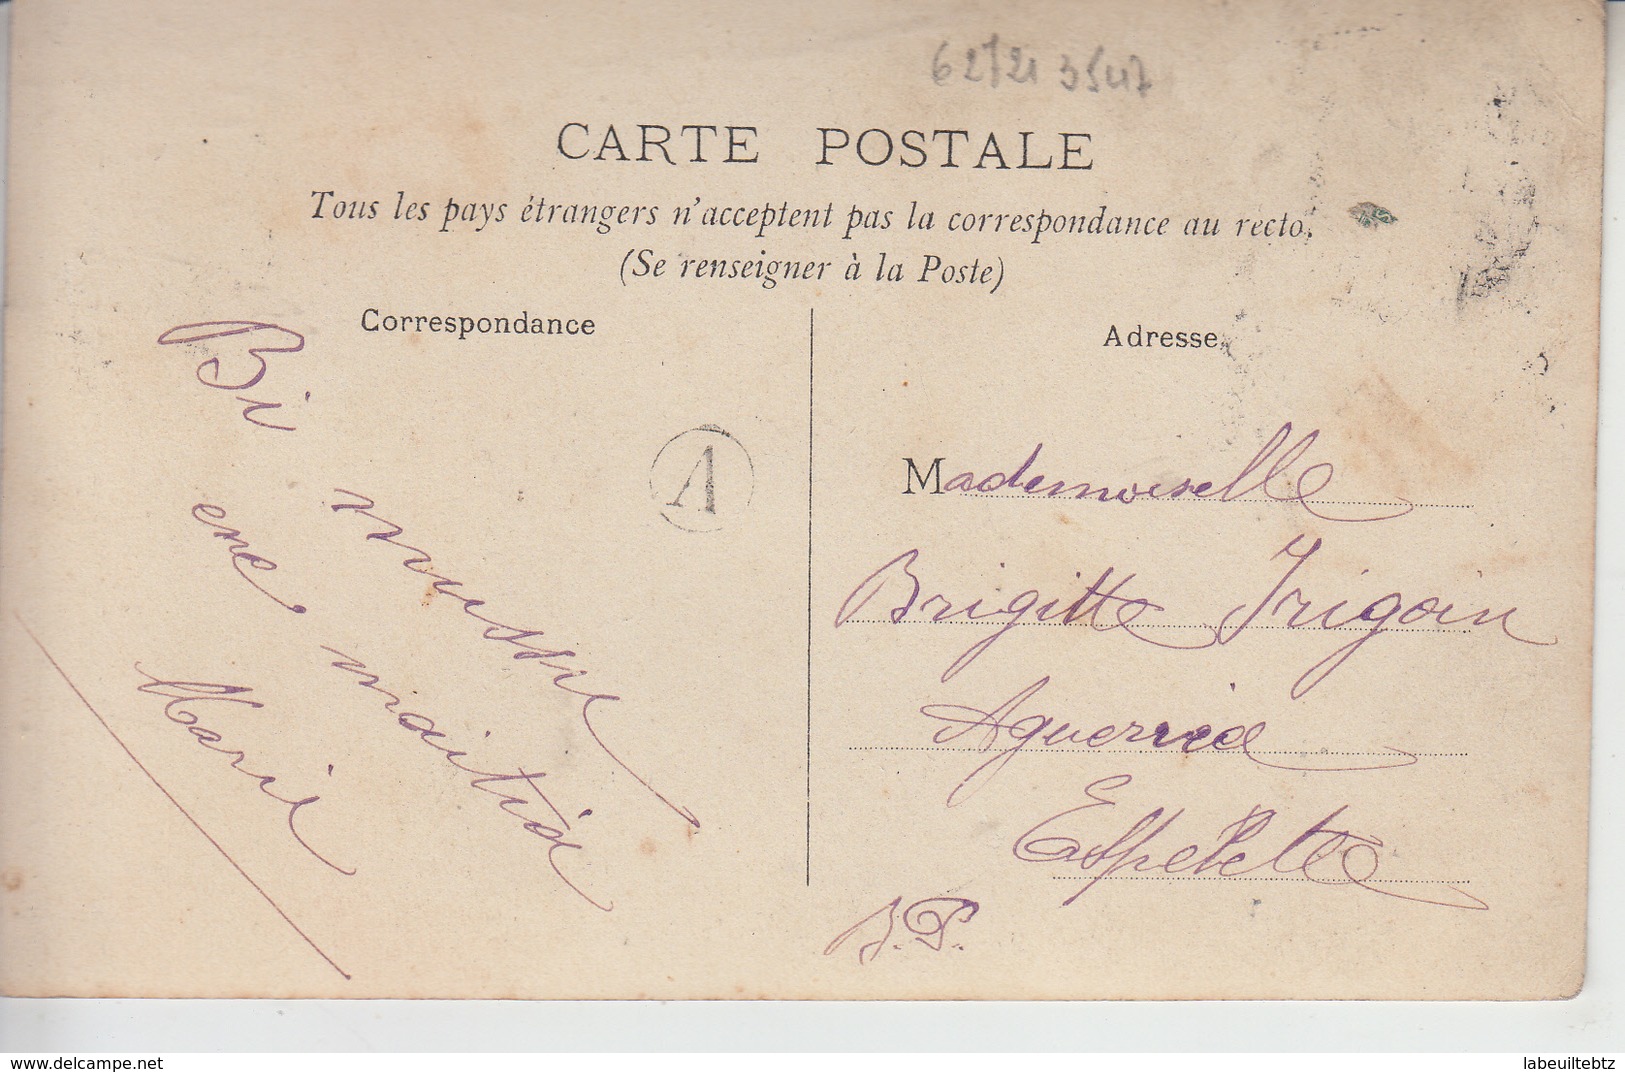 62/21 3547
CARTE POSTALE
Tous les pays étrangers n'acceptent pas la correspondance au recto.
(Se renseigner à la Poste)
Correspondance
Bi musu
ene maitia
Marie
A
Adresse
Mademoiselle
Brigitte Irigoin
Aguerria
Espelette
B.P.
www.delcampe.net
labeuiltebtz